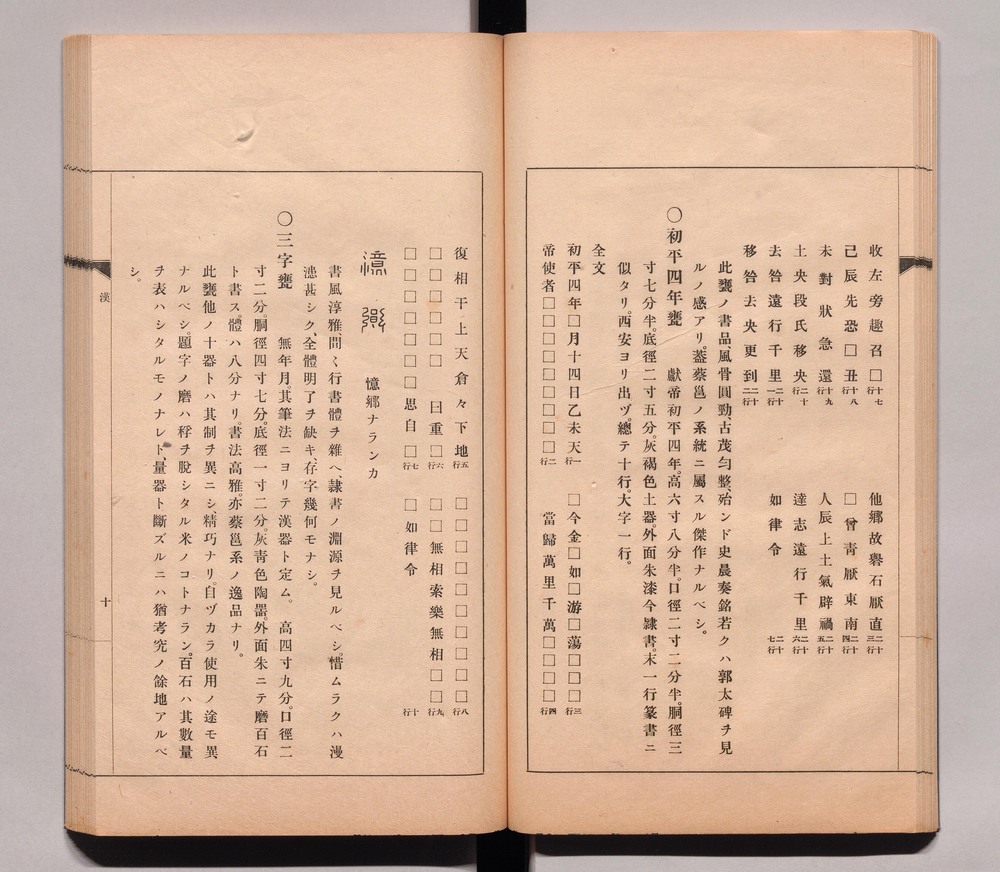 收左旁趣召□十七行　他鄉故礜石厭直二十三行
己辰先恐□丑十八行　□曾青厭東南二十四行
未對狀急還十九行　人辰上土氣辟禍二十五行
土央段氏移央二十行　達志遠行千里二十六行
去咎遠行千里二十一行　如律令二十七行
移咎去央更到二十二行
此甕ノ書品、風骨圓勁、古茂勻整、殆ンド史晨奏銘若クハ郭太碑ヲ見
ルノ感アリ。蓋蔡邕ノ系統ニ屬スル傑作ナルベシ。
〇初平四年甕　獻帝初平四年。高六寸八分半。口徑二寸二分半。胴徑三
寸七分半。底徑二寸五分。灰褐色土器。外面朱漆今隷書。末一行篆書ニ
似タリ。西安ヨリ出ヅ。總テ十行。大字一行。
全文
初平四年□月十四日乙未天一行　□今金□如□游□蕩□□□三行
帝使者□□□□□□□□□二行　當歸萬里千萬□□□□四行
復相干上天倉々下地五行　□□□□□□□□□□八行
□□□□□□　曰重□六行　□□無相索樂無相□□九行
□□□□□□□思自□七行　□如律令　十行
憶鄉　憶鄉ナランカ
書風淳雅、間〻行書體ヲ雜ヘ、隷書ノ淵源ヲ見ルベシ。惜ムラクハ漫
漶甚シク、全體明了ヲ缺キ、存字幾何モナシ。
〇三字甕　無年月。其筆法ニヨリテ漢器ト定ム。　高四寸九分。口徑二
寸二分。胴徑四寸七分。底徑一寸二分。灰青色陶器。外面朱ニテ磨百石
ト書ス。體ハ八分ナリ。書法高雅、亦蔡邕系ノ逸品ナリ。
此甕他ノ十器トハ其制ヲ異ニシ、精巧ナリ。自ヅカラ使用ノ途モ異
ナルベシ。題字ノ磨ハ稃ヲ脫シタル米ノコトナラン。百石ハ其數量
ヲ表ハシタルモノナレド、量器ト斷ズルニハ猶考究ノ餘地アルベ
シ。
漢　十